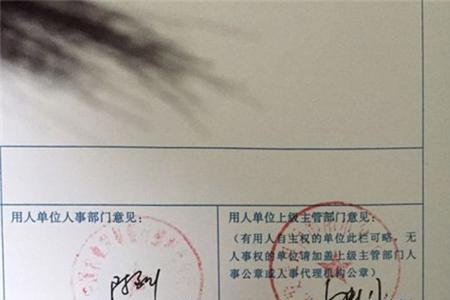 用人单位人事部门意见：
用人单位上级主管部门意见：
(有用人自主权的单位此栏可略，无
人事权的单位请加盖上级主管部门人
事公章或人事代理机构公章)